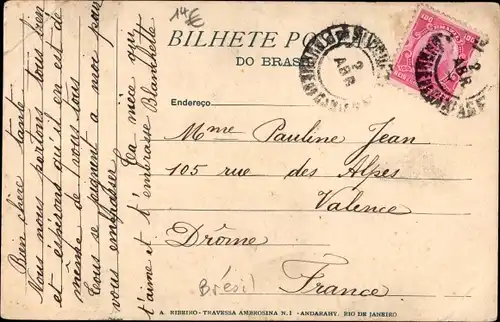 14€
BILHETE PO
DO BRAS
Endereço
Mme Pauline Jean
105 rue des Alpes
Valence
Drôme
France
Brésil
A. RIBEIRO - TRAVESSA AMBROSINA N. 1 - ANDARAHY. RIO DE JANEIRO
Bien chère tante
Nous nous portons tous bien
et espérons qu'il en est de
même de vous tous
Tous se joignent a moi pour
vous embrasser
Ta nièce qui
t'aime et t'embrasse Blanchette
2
ABR
2
ABR
100
100
REIS